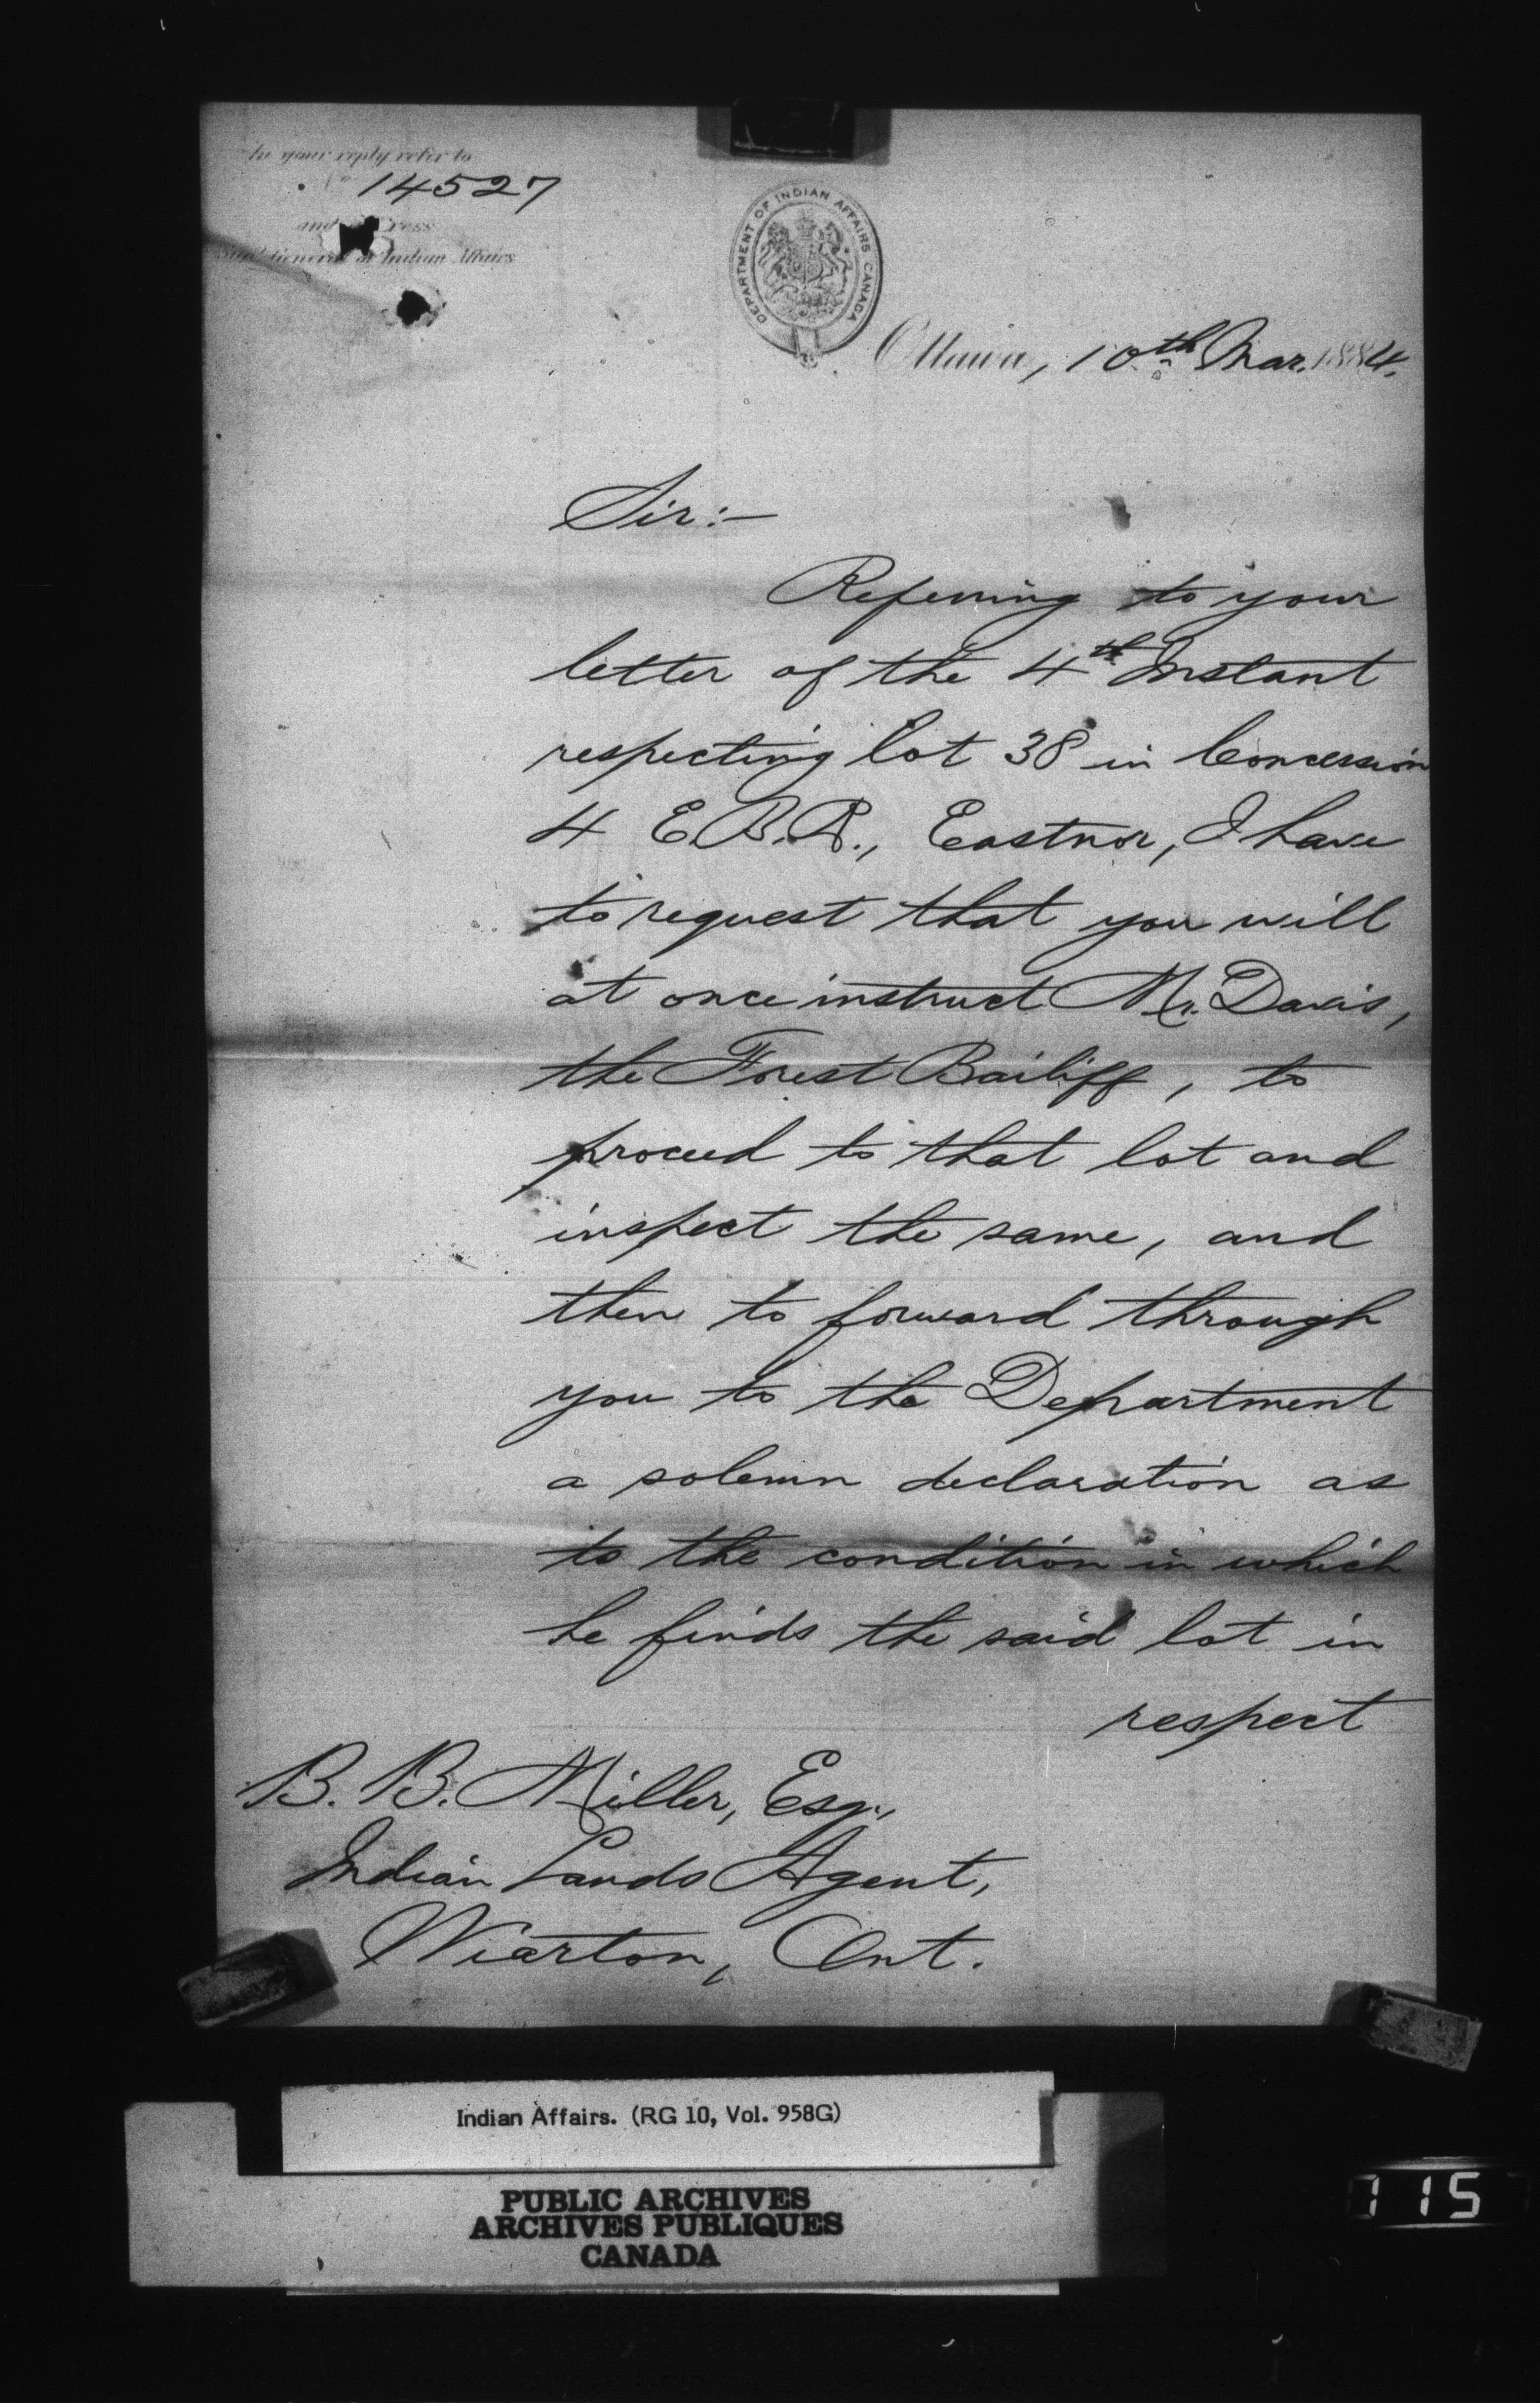 In your reply refer to
No 14527
and
General of Indian Affairs
DEPARTMENT OF INDIAN AFFAIRS CANADA
Ottawa, 10th Mar. 1884.
Sir:—
Referring to your
letter of the 4th Instant
respecting lot 38 in Concession
4 E.B.R., Eastnor, I have
to request that you will
at once instruct Mr. Davis,
the Forest Bailiff, to
proceed to that lot and
inspect the same, and
then to forward through
you to the Department
a solemn declaration as
to the condition in which
he finds the said lot in
respect
B. B. Miller, Esq.,
Indian Lands Agent,
Wiarton, Ont.
Indian Affairs. (RG 10, Vol. 958G)
PUBLIC ARCHIVES
ARCHIVES PUBLIQUES
CANADA
115